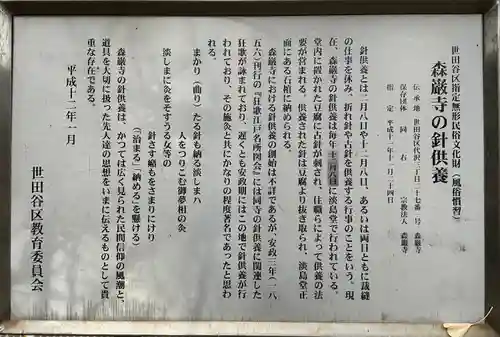 世田谷区指定無形民俗文化財（風俗慣習）
森巌寺の針供養
伝承地 世田谷区代沢三丁目二十七番一号 森巌寺
保存団体 同右 宗教法人 森巌寺
指定 平成十二年十一月二十四日
針供養とは二月八日や十二月八日、あるいは両日ともに裁縫
の仕事を休み、折れ針や古針を供養する行事のことをいう。現
在、森巌寺の針供養は毎年二月八日に淡島堂で行われている。
堂内に置かれた豆腐に古針が刺され、住職らによって供養の法
要が営まれる。供養された針は豆腐より抜き取られ、淡島堂正
面にある石櫃に納められる。
森巌寺における針供養の創始は不詳であるが、安政三年（一八
五六）刊行の『狂歌江戸名所図会』には同寺の針供養に関連した
狂歌が詠まれており、遅くとも安政期にはこの地で針供養が行
われており、その施灸と共にかなりの程度著名であったと思わ
れる。
まかり（曲り）たる針も納る淡しまハ
人をつりこむ御夢想の灸
淡しまに灸をそすうる女等の
針さす蛸もをさまりにけり
（「治まる」「納める」を懸ける）
森巌寺の針供養は、かつては広く見られた民間信仰の風潮と、
道具を大切に扱った先人達の思想をいまに伝えるものとして貴
重な存在である。
平成十三年一月
世田谷区教育委員会